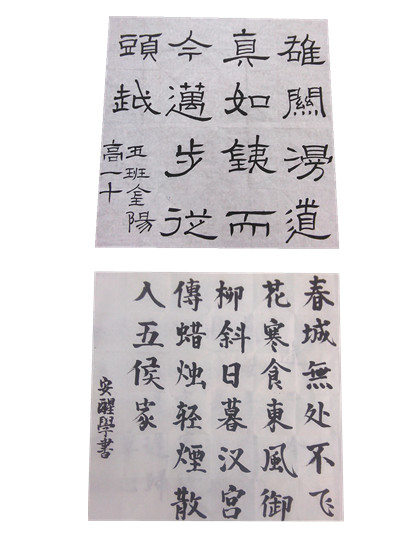 雄關漫道
真如銕而
今邁步從
頭越
高一十
五班金陽
春城無处不飞
花寒食東風御
柳斜日暮汉宫
傳蜡烛轻煙散
入五侯家
安醒學書